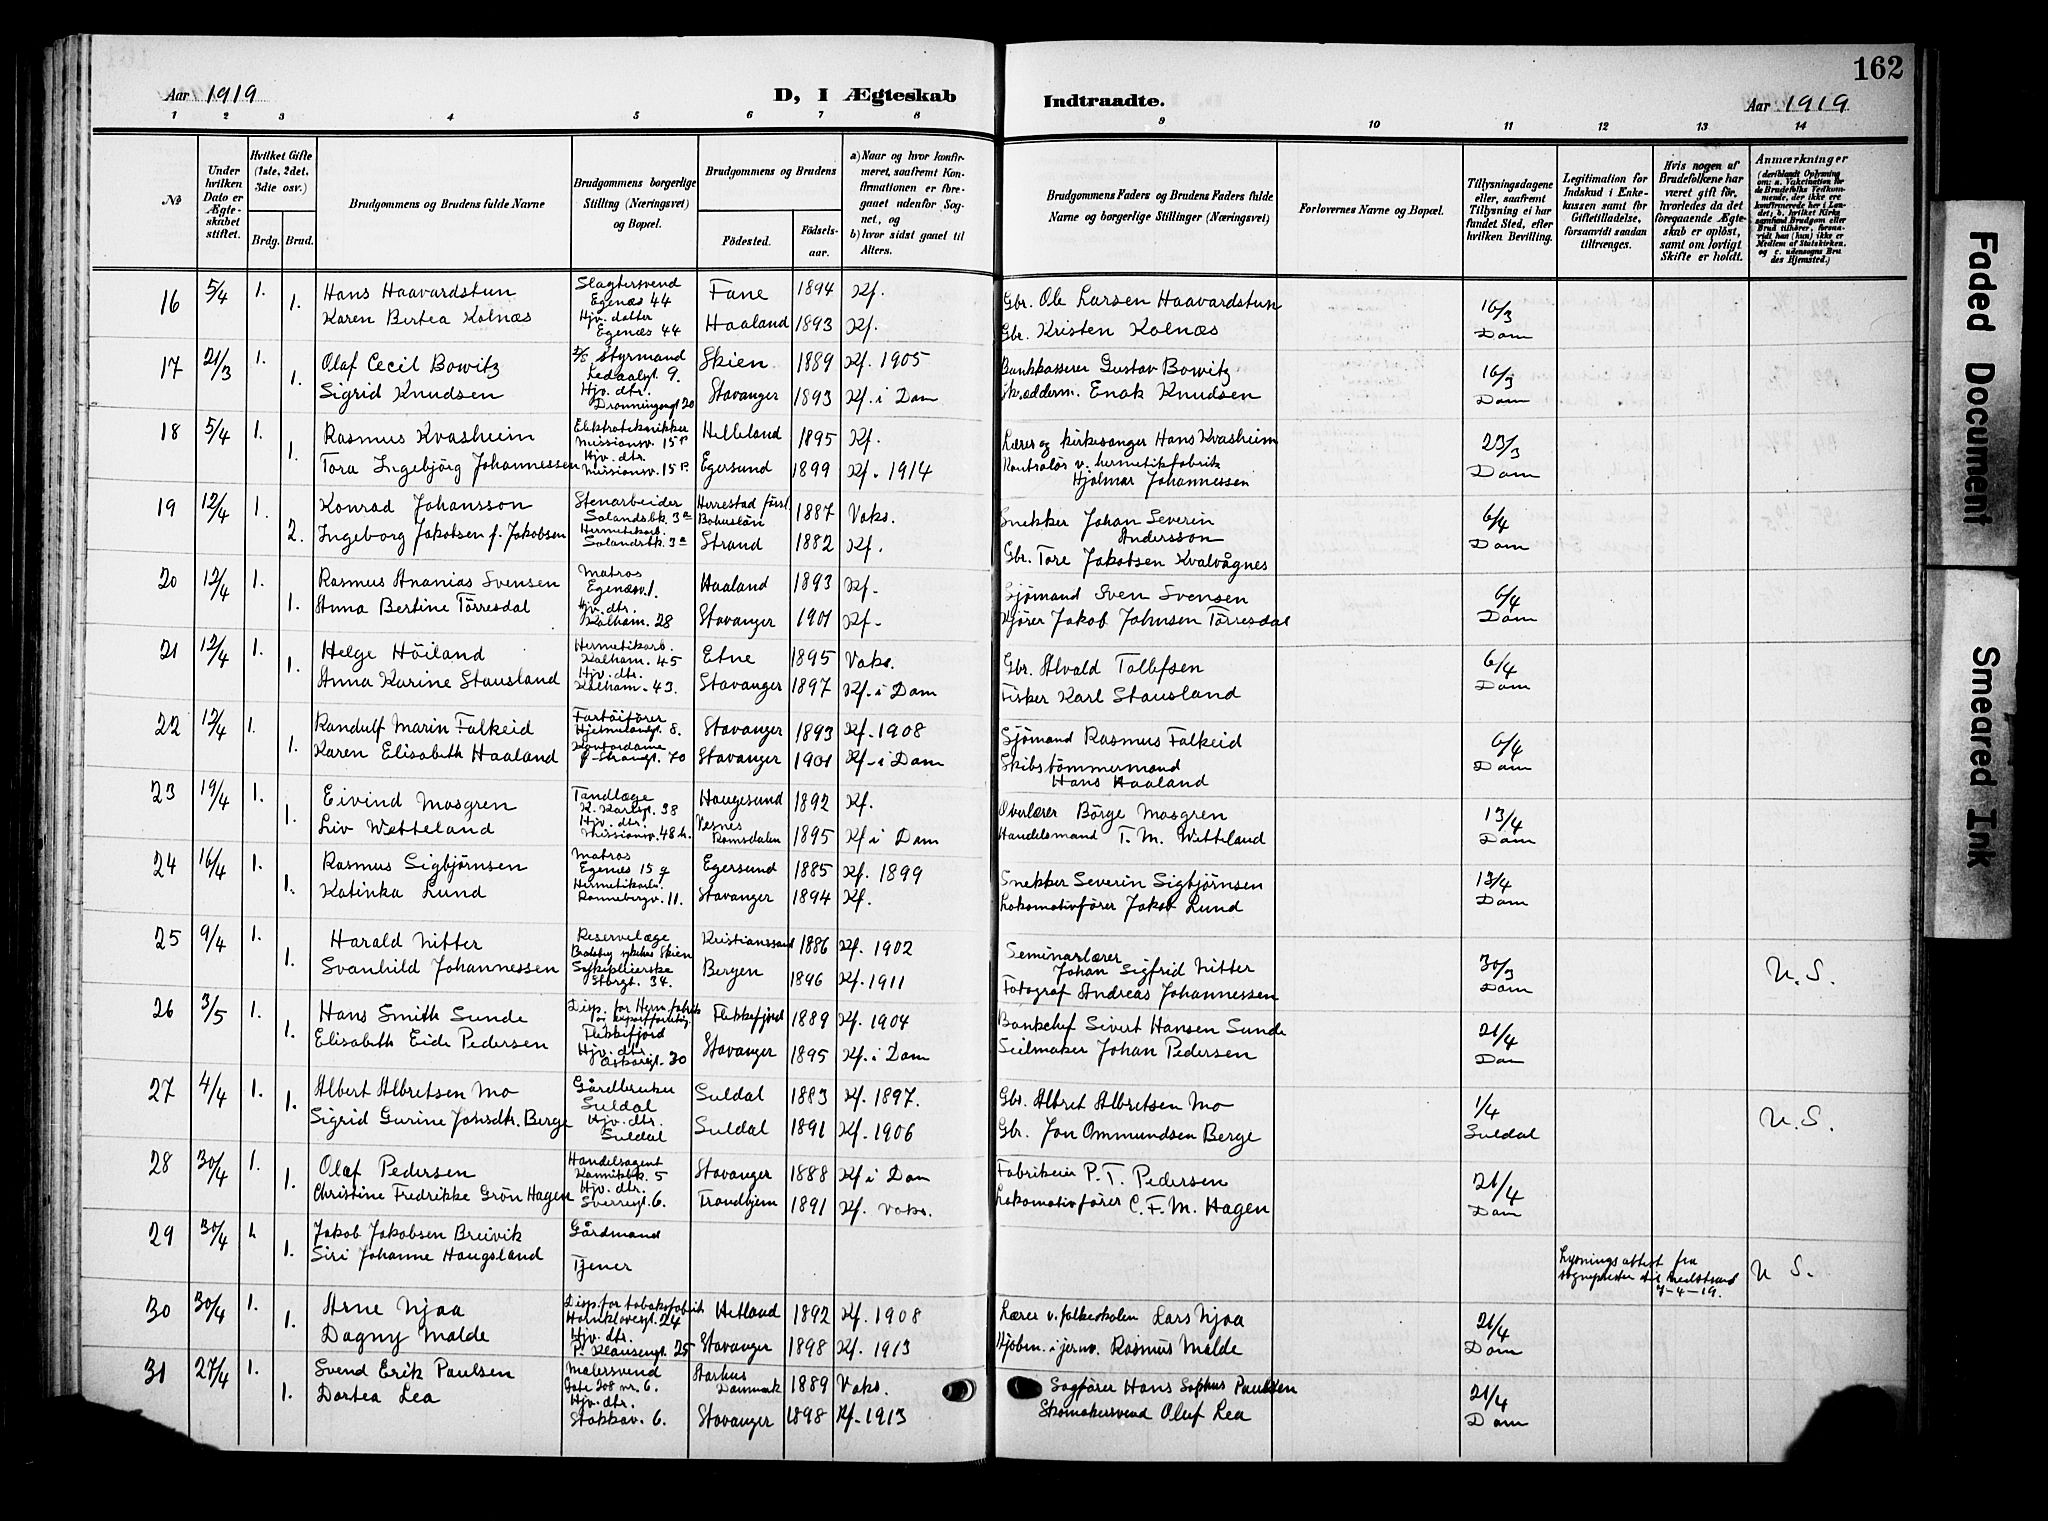 162
Aar 1919
D, I Ægteskab
Indtraadte.
Aar 1919
1 2 3 4 5 6 7 8 9 10 11 12 13 14
No
Under hvilken Dato er Ægteskabet stiftet.
Hvilket Gifte (1ste, 2det, 3die osv.)
Brdg. Brud.
Brudgommens og Brudens fulde Navne
Brudgommens borgerlige Stilling (Næringsvei) og Bopæl.
Brudgommens og Brudens
Fødested.
Fødselsaar.
a) Naar og hvor konfirmeret, saafremt Konfirmationen er foregaaet udenfor Sognet, og
b) hvor sidst gaaet til Alters.
Brudgommens Faders og Brudens Faders fulde Navne og borgerlige Stillinger (Næringsvei)
Forlovernes Navne og Bopæl.
Tillysningsdagene eller, saafremt Tillysning ei har fundet Sted, efter hvilken Bevilling.
Legitimation for Indskud i Enkekassen samt for Giftetilladelse, forsaavidt saadan tiltrænges.
Hvis nogen af Brudefolkene har været gift før, hvorledes da det foregaaende Ægteskab er opløst, samt om lovligt Skifte er holdt.
Anmærkninger
(deriblandt Oplysning om: a. Vakcination for de Brudefolks Vedkommende, der ikke ere konfirmerede her i Landet; b. hvilket Kirkesamfund Brudgom eller Brud tilhører, forsaavidt han (hun) ikke er Medlem af Statskirken, og c. udensogns Brudes Hjemsted.)
16 5/4 1. Hans Haavardstun Slagtersvend Egenæs 44 Fane 1894 Kf. Gbr. Ole Larsen Haavardstun 16/3
1. Karen Bertea Kolnæs Hjv. datter Egenæs 44 Haaland 1893 Kf. Gbr. Kristen Kolnæs Dom
17 21/3 1. Olaf Cecil Bowitz Styrmand Ledaalgt. 9. Skien 1889 Kf. 1905 Bankkasserer Gustav Bowitz 16/3
1. Sigrid Knudsen Hjv. dtr. Dronningensgt 20 Stavanger 1893 Kf. i Dom Skrædderm. Enok Knudsen Dom
18 5/4 1. Rasmus Kvasheim Elektrotekniker Missionsv. 15 Helleland 1895 Kf. Lærer og kirkesanger Hans Kvasheim 23/3
1. Tora Ingebjörg Johannessen Hjv. dtr. Missionsv. 15 Egersund 1899 Kf. 1914 Kontrolör v. hermetikfabrik Hjalmar Johannessen Dom
19 12/4 1. Konrad Johansson Stenarbeider Solandsbk. 3a Herrestad förs. Bohuslän 1887 Vaks. Snekker Johan Severin Andersson 6/4
2. Ingeborg Jakobsen f. Jakobsen Hermetikarb. Solandsbk. 3a Strand 1882 Kf. Gbr. Tore Jakobsen Kvalvågnes Dom
20 12/4 1. Rasmus Ananias Svensen Matros Egenæsv. 1. Haaland 1893 Kf. Sjömand Sven Svensen 6/4
1. Anna Bertine Törresdal Hjv. dtr. Kalham. 28 Stavanger 1901 Kf. Kjörer Jakob Johnsen Törresdal Dom
21 12/4 1. Helge Höiland Hermetikarb. Kalham. 45 Etne 1895 Vaks. Gbr. Alvald Tollefsen 6/4
1. Anna Karine Stausland Hjv. dtr. Kalham. 43. Stavanger 1897 Kf. i Dom Fisker Karl Stausland Dom
22 12/4 1. Randulf Marin Falkeid Fartöiförer Hjelmelandsgt 8. Stavanger 1893 Kf. 1908 Sjömand Rasmus Falkeid 6/4
1. Karen Elisabeth Haaland Kontordame Strandgt. 70 Stavanger 1901 Kf. i Dom Skibstömmermand Hans Haaland Dom
23 19/4 1. Eivind Mosgren Tandlæge K. Karlsgt. 38 Haugesund 1892 Kf. Overlærer Börge Mosgren 13/4
1. Liv Wetteland Hjv. dtr. Missionsv. 48 Vesnes Romsdalen 1895 Kf i Dom Handelsmand T. M. Wetteland Dom
24 16/4 1. Rasmus Sigbjørnsen Matros Egenes 15 Egersund 1885 Kf. 1899 Snekker Severin Sigbjørnsen 13/4
1. Katinka Lund Hermetikarb. Rennebergv. 11. Stavanger 1894 Kf. Lokomotivfører Jakob Lund Dom
25 9/4 1. Harald Nitter Reservelæge sykehus Skien Kristianssand 1886 Kf. 1902 Seminarlærer Johan Sigfrid Nitter 30/3 U.S.
1. Svanhild Johannessen Sykepleierske Storgt. 34. Bergen 1896 Kf. 1911 Fotograf Andreas Johannessen Dom
26 3/5 1. Hans Smith Sunde Disp. for Herm. fabrik Flekkefjord Flekkefjord 1889 Kf. 1904 Bankchef Sivert Hansen Sunde 21/4
1. Elisabeth Eide Pedersen Hjv. dtr. Oskarsgt. 30 Stavanger 1895 Kf. i Dom Seilmaker Johan Pedersen Dom
27 4/4 1. Albert Albretsen Mo Gårdbruker Suldal Suldal 1883 Kf. 1897. Gbr. Albret Albretsen Mo 1/4 U.S.
1. Sigrid Gurine Jonsdtr. Berge Hjv. dtr. Suldal Suldal 1891 Kf. 1906 Gbr. Jon Ommundsen Berge Suldal
28 30/4 1. Olaf Pedersen Handelsagent Kannikbk. 5 Stavanger 1888 Kf i Dom Fabrikeier P. T. Pedersen 21/4
1. Christine Fredrikke Grön Hagen Hjv. dtr. Sverresgt. 6. Trondhjem 1891 Kf. Vaks. Lokomotivfører C. F. M. Hagen Dom
29 30/4 1. Jakob Jakobsen Breivik Gårdmand
1. Siri Johanne Haugsland Tjener Lysningsattest fra sognepresten til Nedstrand 7-4-19. U S.
30 30/4 1. Arne Njaa Disp. for tobaksfabrik 24 Hetland 1892 Kf. 1908 Lærer v. folkeskolen Lars Njaa 21/4
1. Dagny Malde Hjv. dtr. P. Klausengt. 25 Stavanger 1898 Kf. 1913 Kjöbm. i jernv. Rasmus Malde Dom
31 27/4 1. Svend Erik Paulsen Malersvend Gate 208 nr. 6. Danmark 1889 Vaks. Sagfører Hans Sophus Paulsen 21/4
1. Dortea Lea Hjv. dtr. Stokkav. 6. Stavanger 1898 Kf. 1913 Skomakersvend Oluf Lea Dom
Faded Document
Smeared Ink